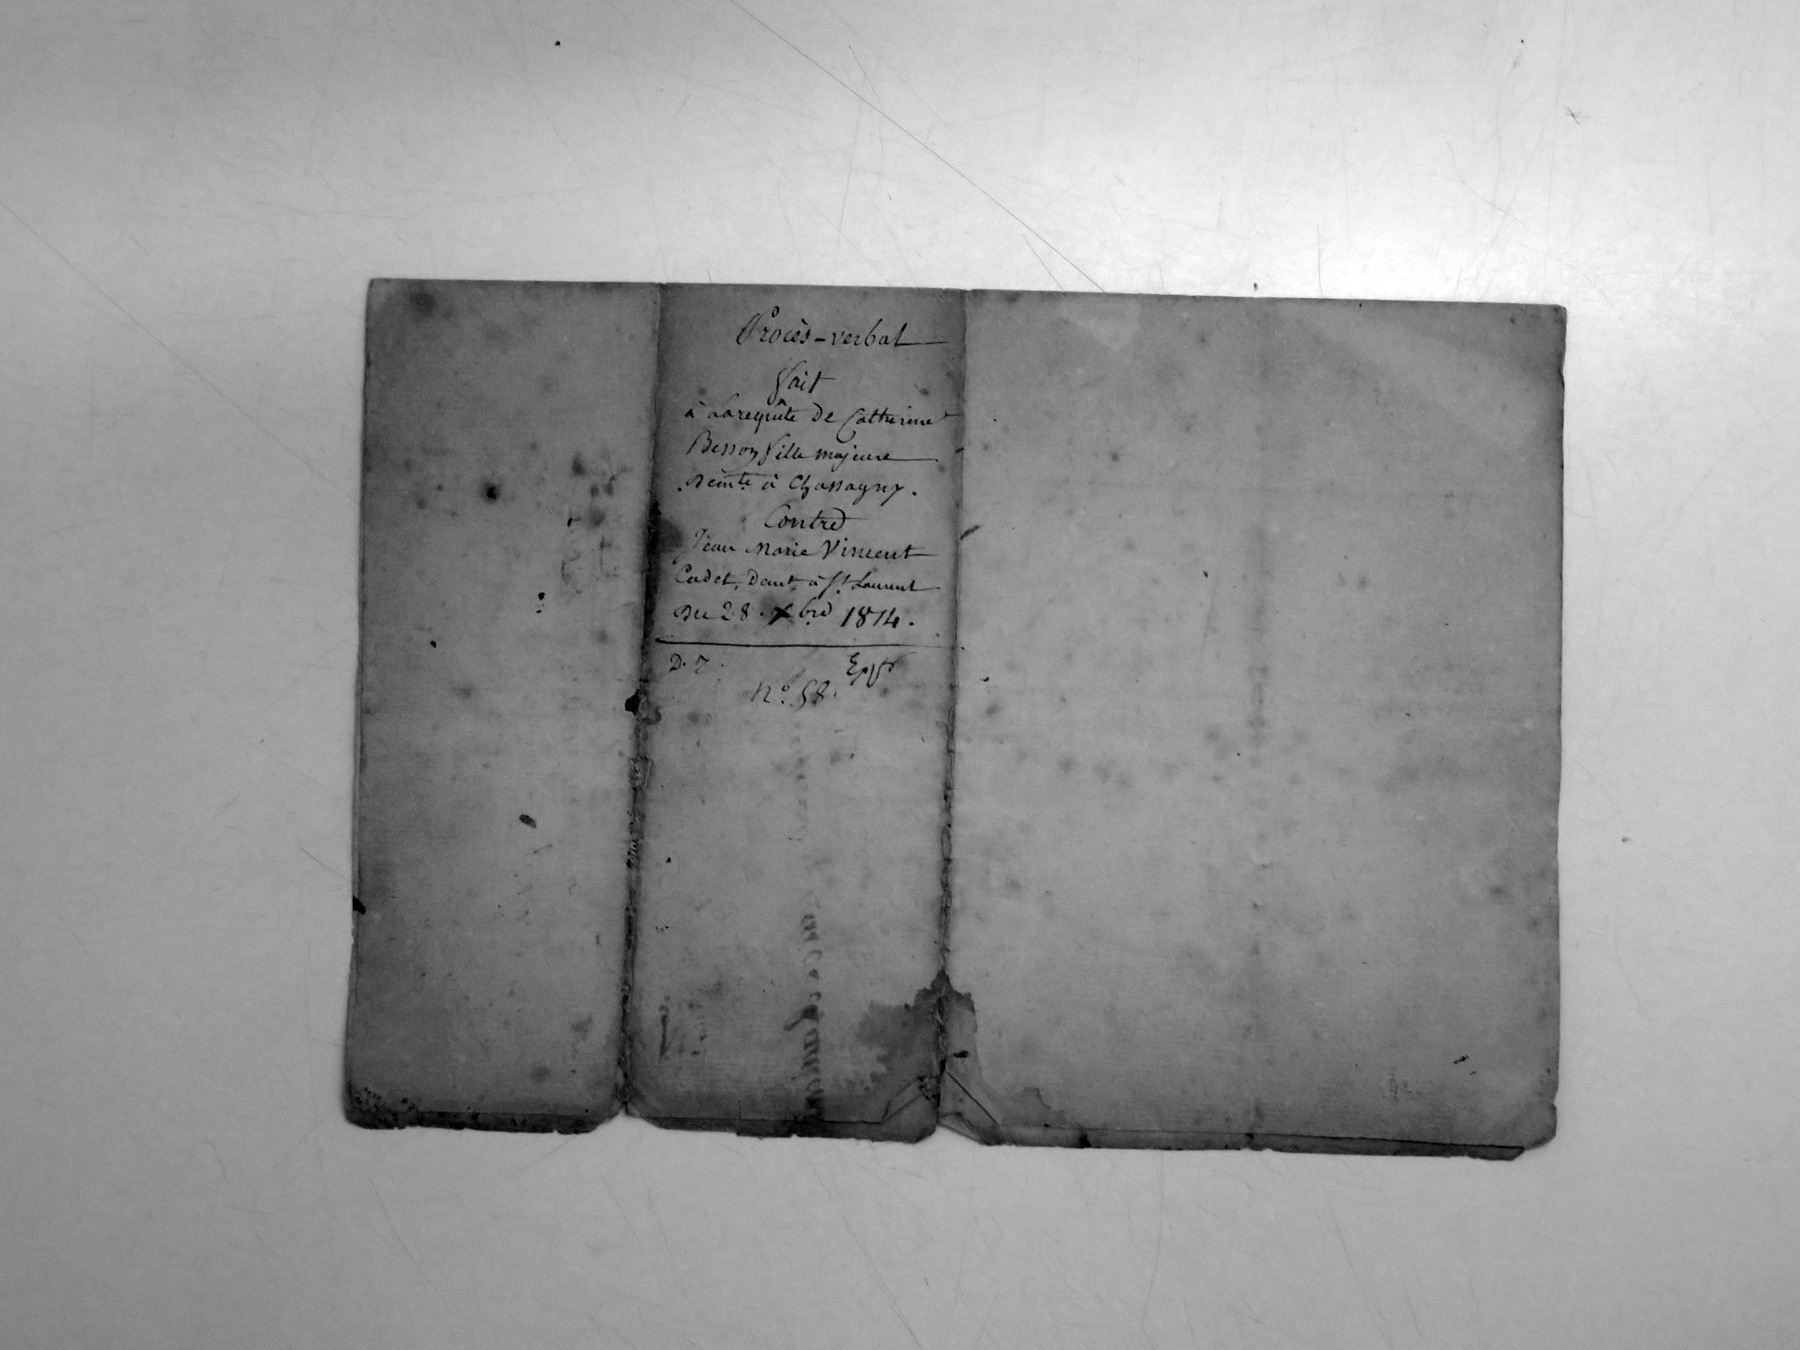 Procès-verbal
fait
à Larequête de Catherine
Besson fille majeure
demte à Chassagny.
Contre
Jean Marie Vincent
Cadet, Demt à St. Laurent
du 28 Xbre 1814.
D. 7.
Expr
N.o 58.